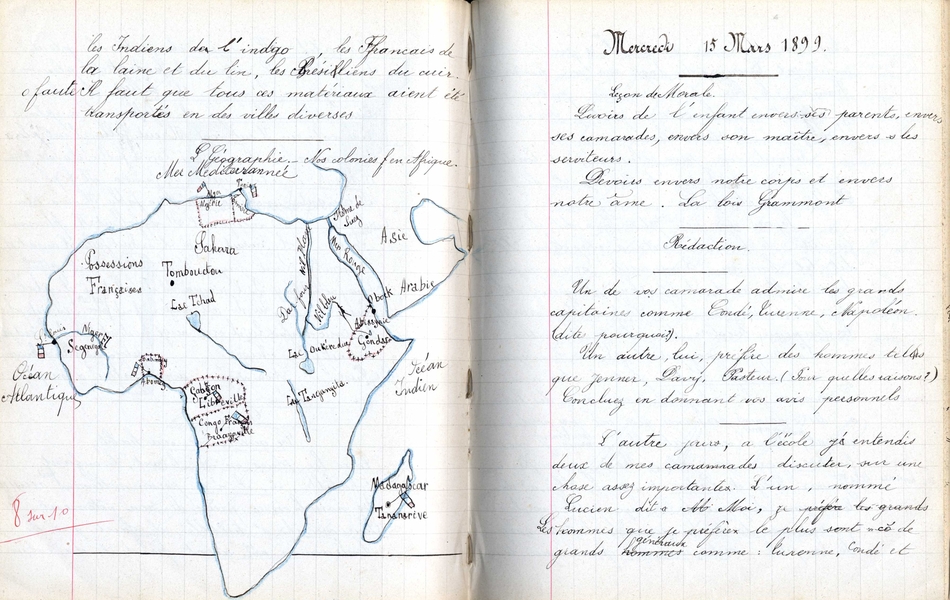 les Indiens de l'indigo, les Français de
la laine et du lin, les Brésiliens du cuir.
0 faute Il faut que tous ces matériaux aient été
transportés en des villes diverses
Géographie. Nos colonies f en Afrique.
Mer Mediterrannée
Algérie
Isthme de Suez
Asie
Sahara
Mer Rouge
Possessions Françaises
Tombouctou
Nil Blanc
Nil bleu
Obock
Arabie
Lac Tchad
Abyssinie
Gondar
St Louis
Niger
Sénégal
Lac Oukéréoué
Dahomey
Abomey
Océan Atlantique
Océan Indien
Gabon
Libreville
Lac Tanganyika
Congo Français
Brazzaville
Madagascar
Tananarive
8 sur 10
Mercredi 15 Mars 1899.
Leçon de Morale.
Devoirs de l'enfant envers ses parents, envers
ses camarades, envers son maître, envers s les
serviteurs.
Devoirs envers notre corps et envers
notre âme. La lois Grammont
Rédaction.
Un de vos camarade admire les grands
capitaines comme Condé, Turenne, Napoléon.
(dite pourquoi?).
Un autre, lui, préfère des hommes tels
que Jenner, Davy, Pasteur. (Pour quelles raisons?)
Concluez en donnant vos avis personnels
L'autre jours, a l'école j'entendis
deux de mes camamrades discuter, sur une
chose assez importantes. L'un, nommé
Lucien dit à Moi, je préfère les grands
Les hommes que je préfère le plus sont de
grands hommes généraux comme: Turenne, Condé et